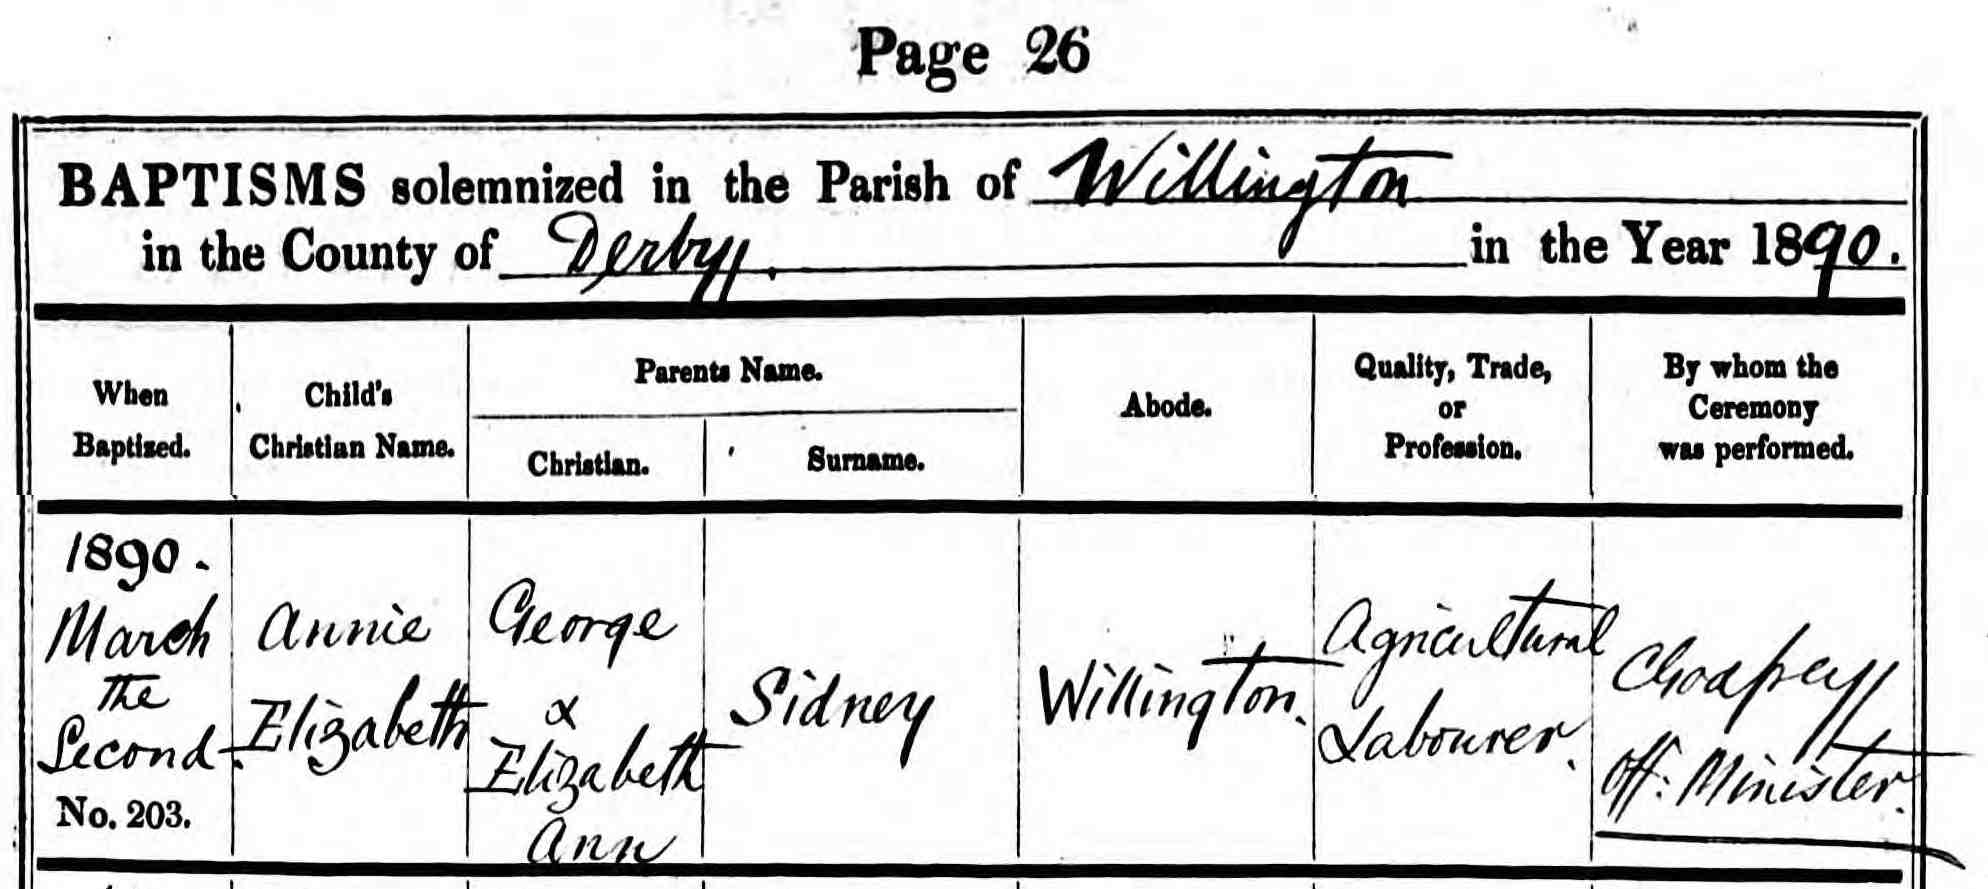 Page 26
BAPTISMS solemnized in the Parish of Willington
in the County of Derby. in the Year 1890.
When
Baptized.
Child's
Christian Name.
Parents Name.
Christian.
Surname.
Abode.
Quality, Trade,
or
Profession.
By whom the
Ceremony
was performed.
1890.
March
the
Second.
No. 203.
Annie
Elizabeth
George
&
Elizabeth
Ann
Sidney
Willington.
Agricultural
Labourer.
Off: Minister.